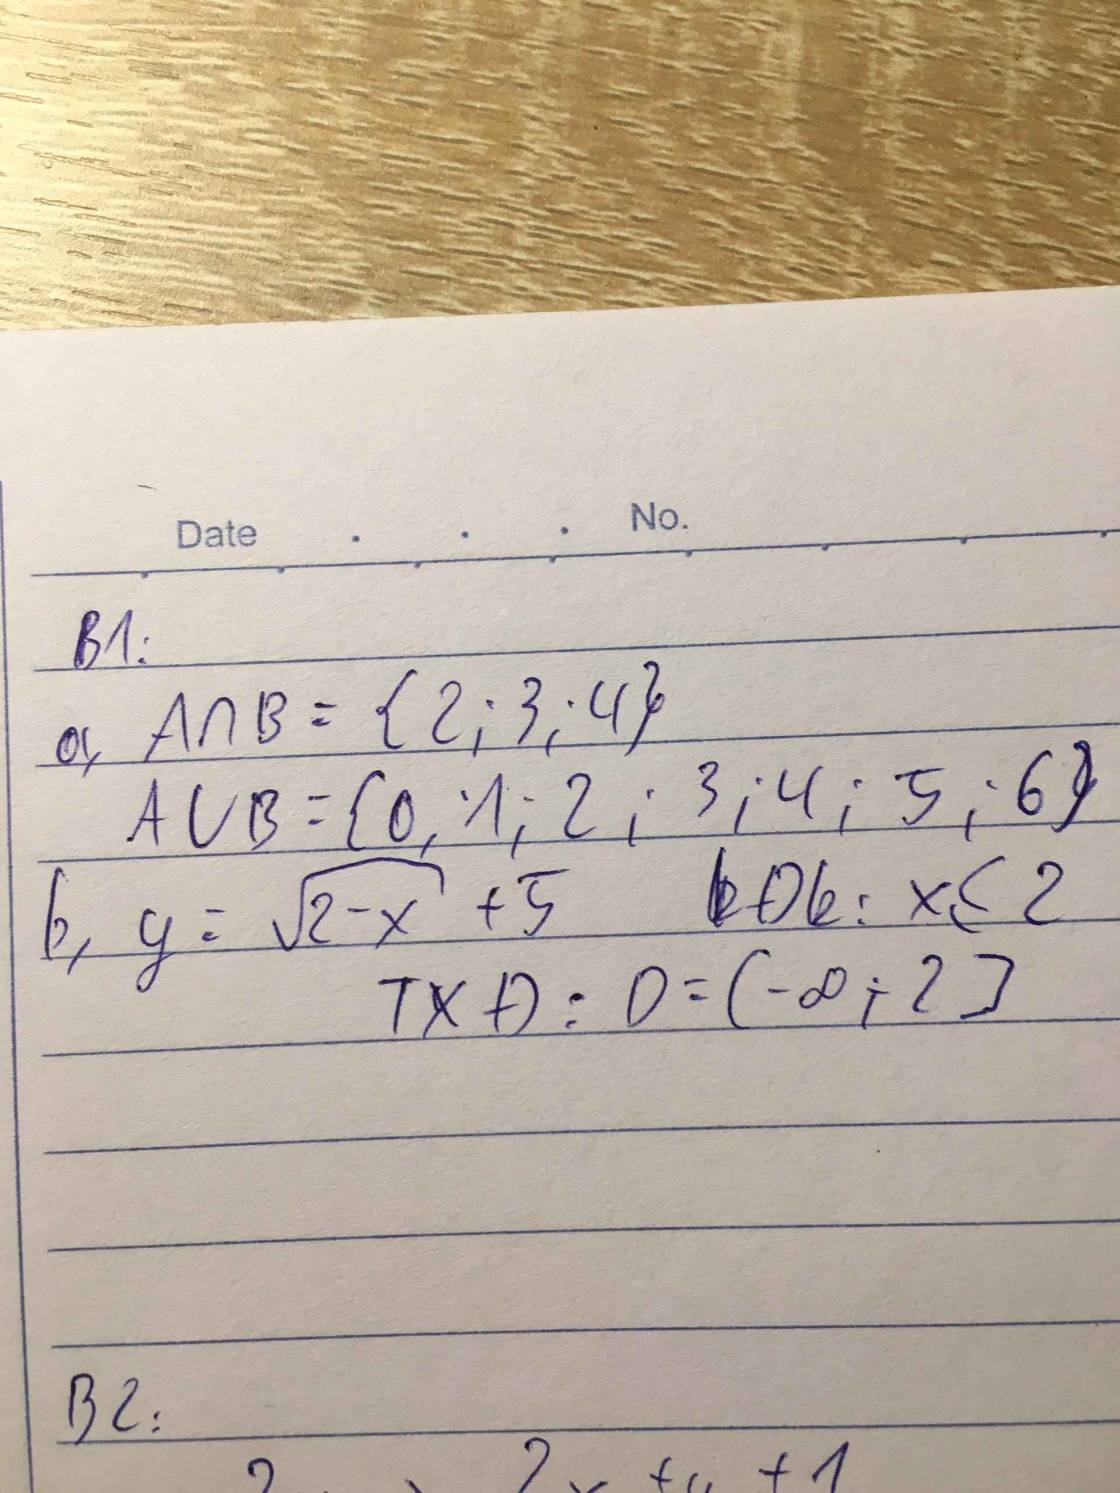 Date . . . No.
B1:
a, A∩B = {2; 3; 4}
A∪B = {0; 1; 2; 3; 4; 5; 6}
b, y = √(2-x) + 5 ĐK: x ≤ 2
TXĐ: D = (-∞; 2]
B2: